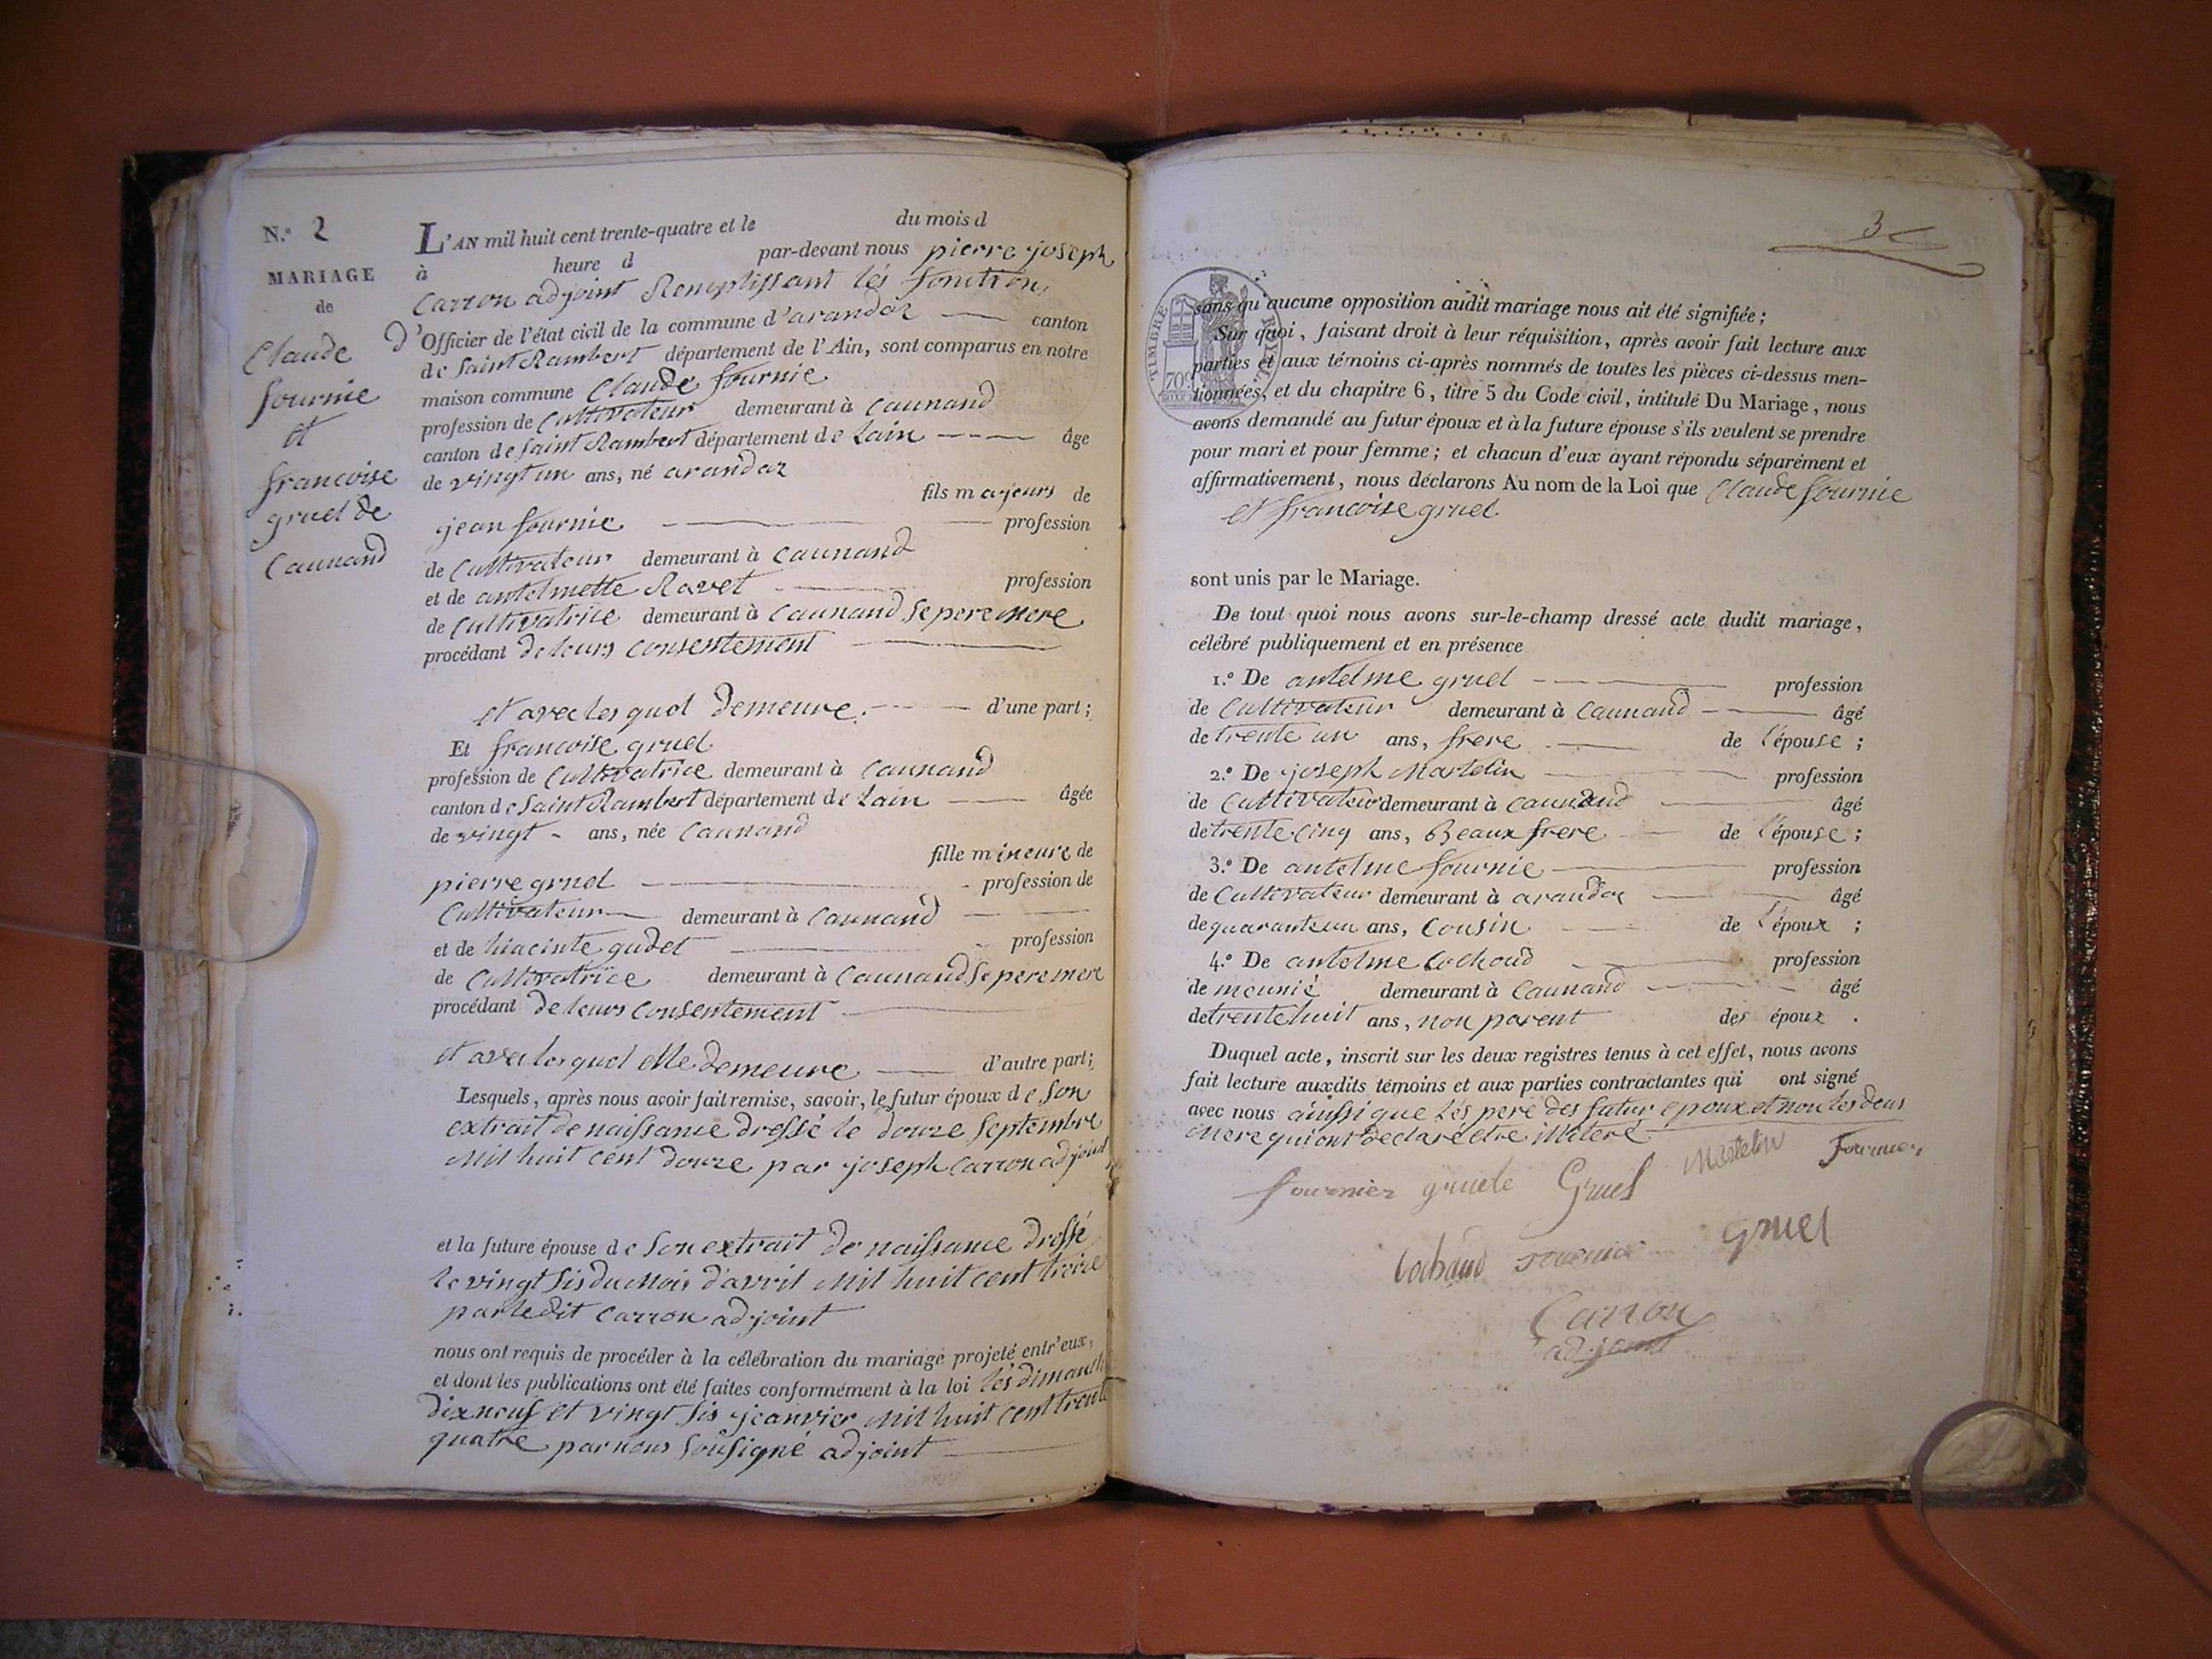 N.º 2
MARIAGE
de
Claude
fournie
et
francoise
gruel de
Caunand
L'AN mil huit cent trente-quatre et le du mois d
à heure d par-devant nous pierre joseph
Carron adjoint Remplissant lés fonction
d'Officier de l'état civil de la commune d'arandaz canton
de Saint Rambert département de l'Ain, sont comparus en notre
maison commune Claude fournie
profession de Cultivateur demeurant à Caunand
canton de Saint Rambert département de Lain âge
de vingt un ans, né arandaz
fils majeurs de
jean fournie profession
de Cultivateur demeurant à Caunand
et de antelmette Ravet profession
de Cultivatrice demeurant à Caunand se pere mere
procédant de leurs consentement
et avec les quel demeure d'une part;
Et francoise gruel
profession de Cultivatrice demeurant à Caunand
canton de Saint Rambert département de Lain âgée
de vingt ans, née Caunand
fille mineure de
pierre gruel profession de
Cultivateur demeurant à Caunand
et de hiacinte gudet profession
de Cultivatrice demeurant à Caunand se pere mere
procédant de leurs consentement
et avec les quel elle demeure d'autre part;
Lesquels, après nous avoir fait remise, savoir, le futur époux de son
extrait de naissance dressé le douze Septembre
mil huit cent douze par joseph Carron adjoint
et la future épouse de son extrait de naissance dressé
le vingt sis du mois d'avril mil huit cent treize
par ledit Carron adjoint
nous ont requis de procéder à la célébration du mariage projeté entr'eux,
et dont les publications ont été faites conformément à la loi lés dimanch
dixneuf et vingt sis jeanvier mil huit cent trente
quatre par nous sousigné adjoint
3
TIMBRE ROYAL
70c
sans qu'aucune opposition audit mariage nous ait été signifiée;
Sur quoi, faisant droit à leur réquisition, après avoir fait lecture aux
parties et aux témoins ci-après nommés de toutes les pièces ci-dessus men-
tionnées, et du chapitre 6, titre 5 du Code civil, intitulé Du Mariage, nous
avons demandé au futur époux et à la future épouse s'ils veulent se prendre
pour mari et pour femme; et chacun d'eux ayant répondu séparément et
affirmativement, nous déclarons Au nom de la Loi que Claude fournie
et francoise gruel
sont unis par le Mariage.
De tout quoi nous avons sur-le-champ dressé acte dudit mariage,
célébré publiquement et en présence
1.º De antelme gruel profession
de Cultivateur demeurant à Caunand âgé
de trente un ans, frere de l'épouse;
2.º De joseph Martelin profession
de Cultivateur demeurant à Caunand âgé
de trente cinq ans, Beaux frere de l'épouse;
3.º De antelme fournie profession
de Cultivateur demeurant à arandaz âgé
de quarante un ans, Cousin de l'époux;
4.º De antelme Cochoud profession
de meunié demeurant à Caunand âgé
de trente huit ans, non parent des époux.
Duquel acte, inscrit sur les deux registres tenus à cet effet, nous avons
fait lecture auxdits témoins et aux parties contractantes qui ont signé
avec nous ainssi que lés pere des futur epoux et non les deus
mere qui ont declaré etre illiteré
fournier gruele Gruel Martelin Fournier
Cochaud fournier gruel
Carron
adjoint